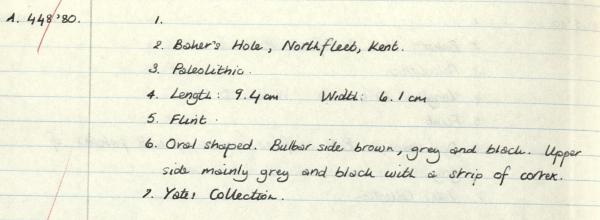 A. 448'80. 1.
2. Baker's Hole, Northfleet, Kent.
3. Paleolithic.
4. Length: 9.4cm Width: 6.1cm
5. Flint.
6. Oval shaped. Bulbar side brown, grey and black. Upper
side mainly grey and black with a strip of cortex.
7. Yates Collection.